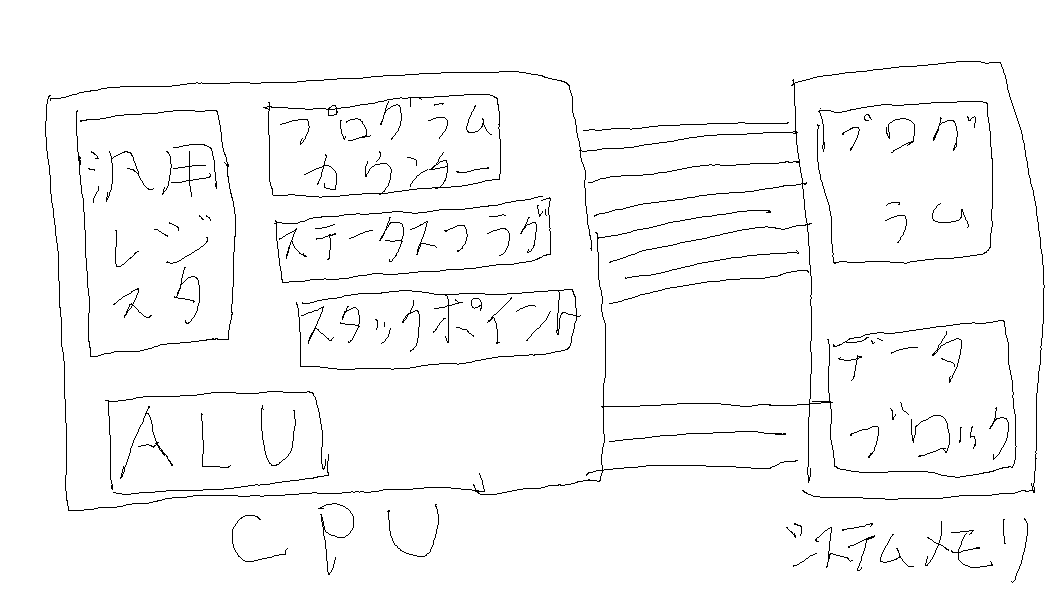 汎用
レジ
スタ
プログラム
カウンター
ステータスフラグ
スタックポイント
ALU
CPU
プログ
ラム
データ
ブロック
システムメモリ